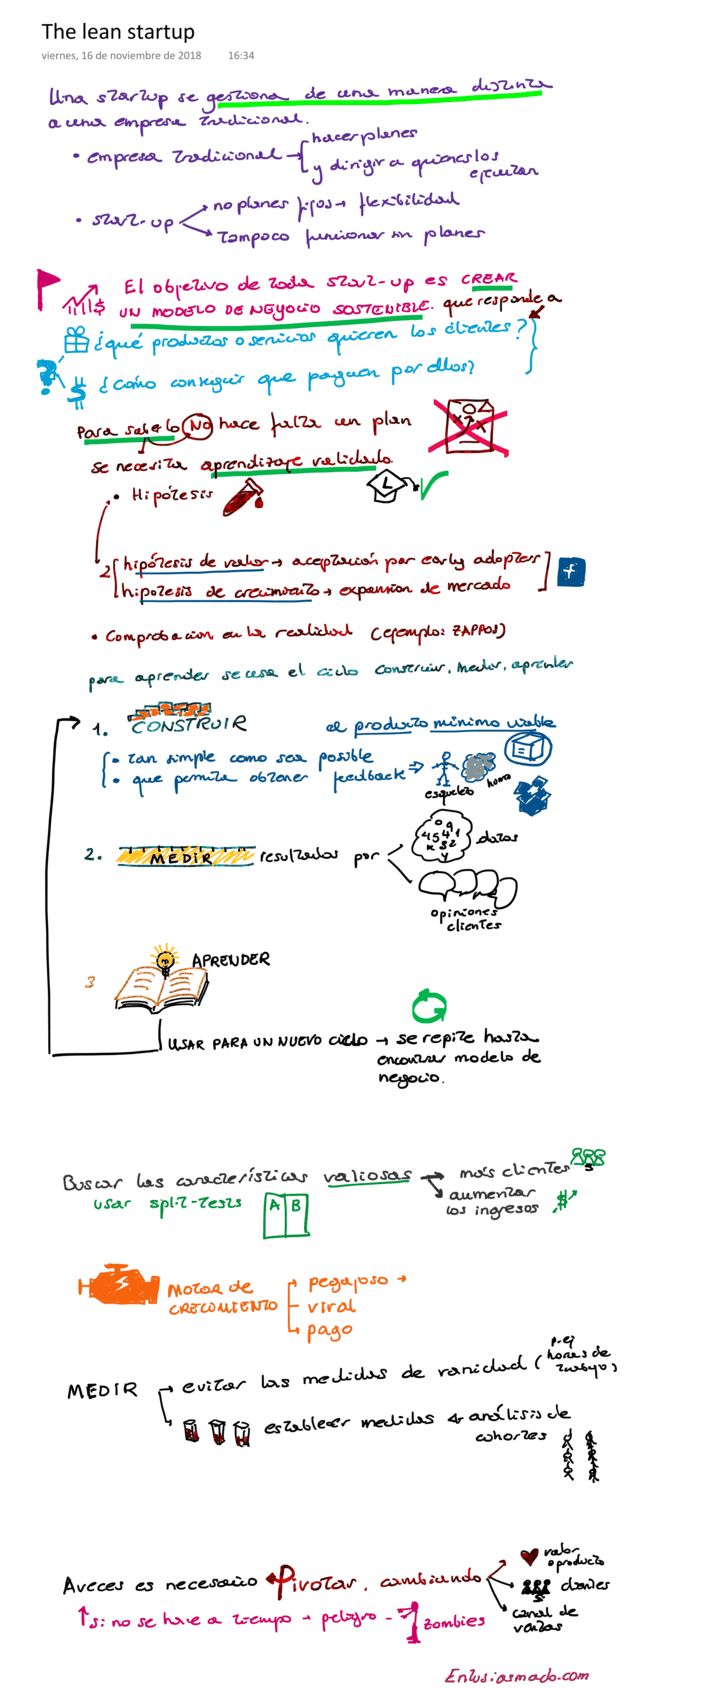 The lean startup
viernes, 16 de noviembre de 2018 16:34
Una startup se gestiona de una manera distinta
a una empresa tradicional.
• empresa tradicional → hacer planes
y dirigir a quienes los
ejecutan
• start-up → no planes fijos → flexibilidad
→ tampoco funcionar sin planes
El objetivo de toda start-up es CREAR
UN MODELO DE NEGOCIO SOSTENIBLE. que responde a
¿qué productos o servicios quieren los clientes?
$ ¿cómo conseguir que paguen por ellos?
Para saberlo NO hace falta un plan
se necesita aprendizaje validado.
• Hipótesis
L
2 hipótesis de valor → aceptación por early adopters
hipótesis de crecimiento → expansión de mercado
f
• Comprobación en la realidad (ejemplo: ZAPPOS)
para aprender se usa el ciclo construir, medir, aprender
1. CONSTRUIR el producto mínimo viable
• tan simple como sea posible
• que permita obtener feedback ⇒
esqueleto humo
2. MEDIR resultados por
0 9
4 5 4 1
K S 2
y
datos
opiniones
clientes
3 APRENDER
USAR PARA UN NUEVO ciclo → se repite hasta
encontrar modelo de
negocio.
Buscar las características valiosas → más clientes
usar split-tests A B
→ aumentar
los ingresos $
MOTOR DE
CRECIMIENTO
→ pegajoso →
– viral
→ pago
MEDIR → evitar las medidas de vanidad (p.ej
horas de
trabajo)
→ establecer medidas y análisis de
cohortes
A veces es necesario Pivotar, cambiando
→ valor
o producto
→ clientes
→ canal de
ventas
↑ si no se hace a tiempo → peligro - zombies
Entusiasmado.com